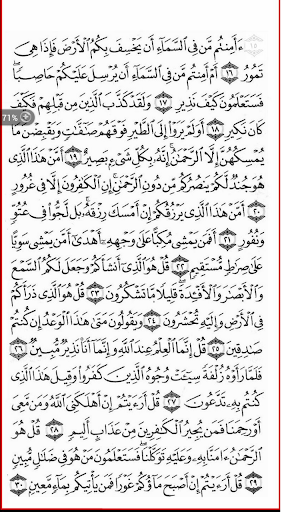 ءَأَمِنتُم مَّن فِي ٱلسَّمَآءِ أَن يَخۡسِفَ بِكُمُ ٱلۡأَرۡضَ فَإِذَا هِيَ
تَمُورُ ١٦ أَمۡ أَمِنتُم مَّن فِي ٱلسَّمَآءِ أَن يُرۡسِلَ عَلَيۡكُمۡ حَاصِبٗاۖ
فَسَتَعۡلَمُونَ كَيۡفَ نَذِيرِ ١٧ وَلَقَدۡ كَذَّبَ ٱلَّذِينَ مِن قَبۡلِهِمۡ فَكَيۡفَ
71%
كَانَ نَكِيرِ ١٨ أَوَلَمۡ يَرَوۡاْ إِلَى ٱلطَّيۡرِ فَوۡقَهُمۡ صَٰٓفَّٰتٖ وَيَقۡبِضۡنَۚ مَا
يُمۡسِكُهُنَّ إِلَّا ٱلرَّحۡمَٰنُۚ إِنَّهُۥ بِكُلِّ شَيۡءِۭ بَصِيرٌ ١٩ أَمَّنۡ هَٰذَا ٱلَّذِي
هُوَ جُندٞ لَّكُمۡ يَنصُرُكُم مِّن دُونِ ٱلرَّحۡمَٰنِۚ إِنِ ٱلۡكَٰفِرُونَ إِلَّا فِي غُرُورٍ
٢٠ أَمَّنۡ هَٰذَا ٱلَّذِي يَرۡزُقُكُمۡ إِنۡ أَمۡسَكَ رِزۡقَهُۥۚ بَل لَّجُّواْ فِي عُتُوّٖ
وَنُفُورٍ ٢١ أَفَمَن يَمۡشِي مُكِبًّا عَلَىٰ وَجۡهِهِۦٓ أَهۡدَىٰٓ أَمَّن يَمۡشِي سَوِيًّا
عَلَىٰ صِرَٰطٖ مُّسۡتَقِيمٖ ٢٢ قُلۡ هُوَ ٱلَّذِيٓ أَنشَأَكُمۡ وَجَعَلَ لَكُمُ ٱلسَّمۡعَ
وَٱلۡأَبۡصَٰرَ وَٱلۡأَفۡـِٔدَةَۚ قَلِيلٗا مَّا تَشۡكُرُونَ ٢٣ قُلۡ هُوَ ٱلَّذِي ذَرَأَكُمۡ
فِي ٱلۡأَرۡضِ وَإِلَيۡهِ تُحۡشَرُونَ ٢٤ وَيَقُولُونَ مَتَىٰ هَٰذَا ٱلۡوَعۡدُ إِن كُنتُمۡ
صَٰدِقِينَ ٢٥ قُلۡ إِنَّمَا ٱلۡعِلۡمُ عِندَ ٱللَّهِ وَإِنَّمَآ أَنَا۠ نَذِيرٞ مُّبِينٞ ٢٦
فَلَمَّا رَأَوۡهُ زُلۡفَةٗ سِيٓـَٔتۡ وُجُوهُ ٱلَّذِينَ كَفَرُواْ وَقِيلَ هَٰذَا ٱلَّذِي
كُنتُم بِهِۦ تَدَّعُونَ ٢٧ قُلۡ أَرَءَيۡتُمۡ إِنۡ أَهۡلَكَنِيَ ٱللَّهُ وَمَن مَّعِيَ
أَوۡ رَحِمَنَا فَمَن يُجِيرُ ٱلۡكَٰفِرِينَ مِنۡ عَذَابٍ أَلِيمٖ ٢٨ قُلۡ هُوَ
ٱلرَّحۡمَٰنُ ءَامَنَّا بِهِۦ وَعَلَيۡهِ تَوَكَّلۡنَاۖ فَسَتَعۡلَمُونَ مَنۡ هُوَ فِي ضَلَٰلٖ مُّبِينٖ
٢٩ قُلۡ أَرَءَيۡتُمۡ إِنۡ أَصۡبَحَ مَآؤُكُمۡ غَوۡرٗا فَمَن يَأۡتِيكُم بِمَآءٖ مَّعِينِۭ ٣٠